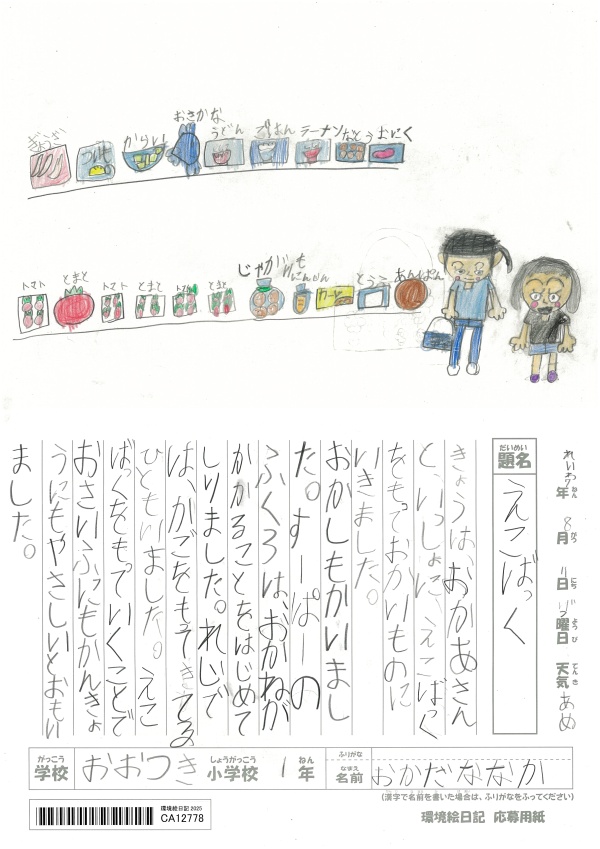 ぎょうざ
からい
おさかな
うどん
ごはん
ラーメン
なとう
おにく
トマト
とまと
トマト
とまと
トマト
とまと
じゃがいも
にんじん
カレー
とうふ
あんぱん
れいわ7年 8月 11日 げつ曜日 天気 あめ
ねん がつ にち ようび てんき
だいめい
題名
えこばっく
きょうは、おかあさん
と、いっしょに、えこばっく
をもっておかいものに
いきました。
おかしもかいまし
た。すーぱーの
ふくろは、おかねが
かかることをはじめて
しりました。れじで
は、かごをもってきてる
ひともいました。えこ
ばっくをもっていくことで
おさいふにもかんきょ
うにもやさしいとおもい
ました。
がっこう
学校
おおつき
しょうがっこう
小学校
1
ねん
年
ふりがな
なまえ
名前
おかだななか
(漢字で名前を書いた場合は、ふりがなをふってください)
環境絵日記 2025
CA12778
環境絵日記 応募用紙